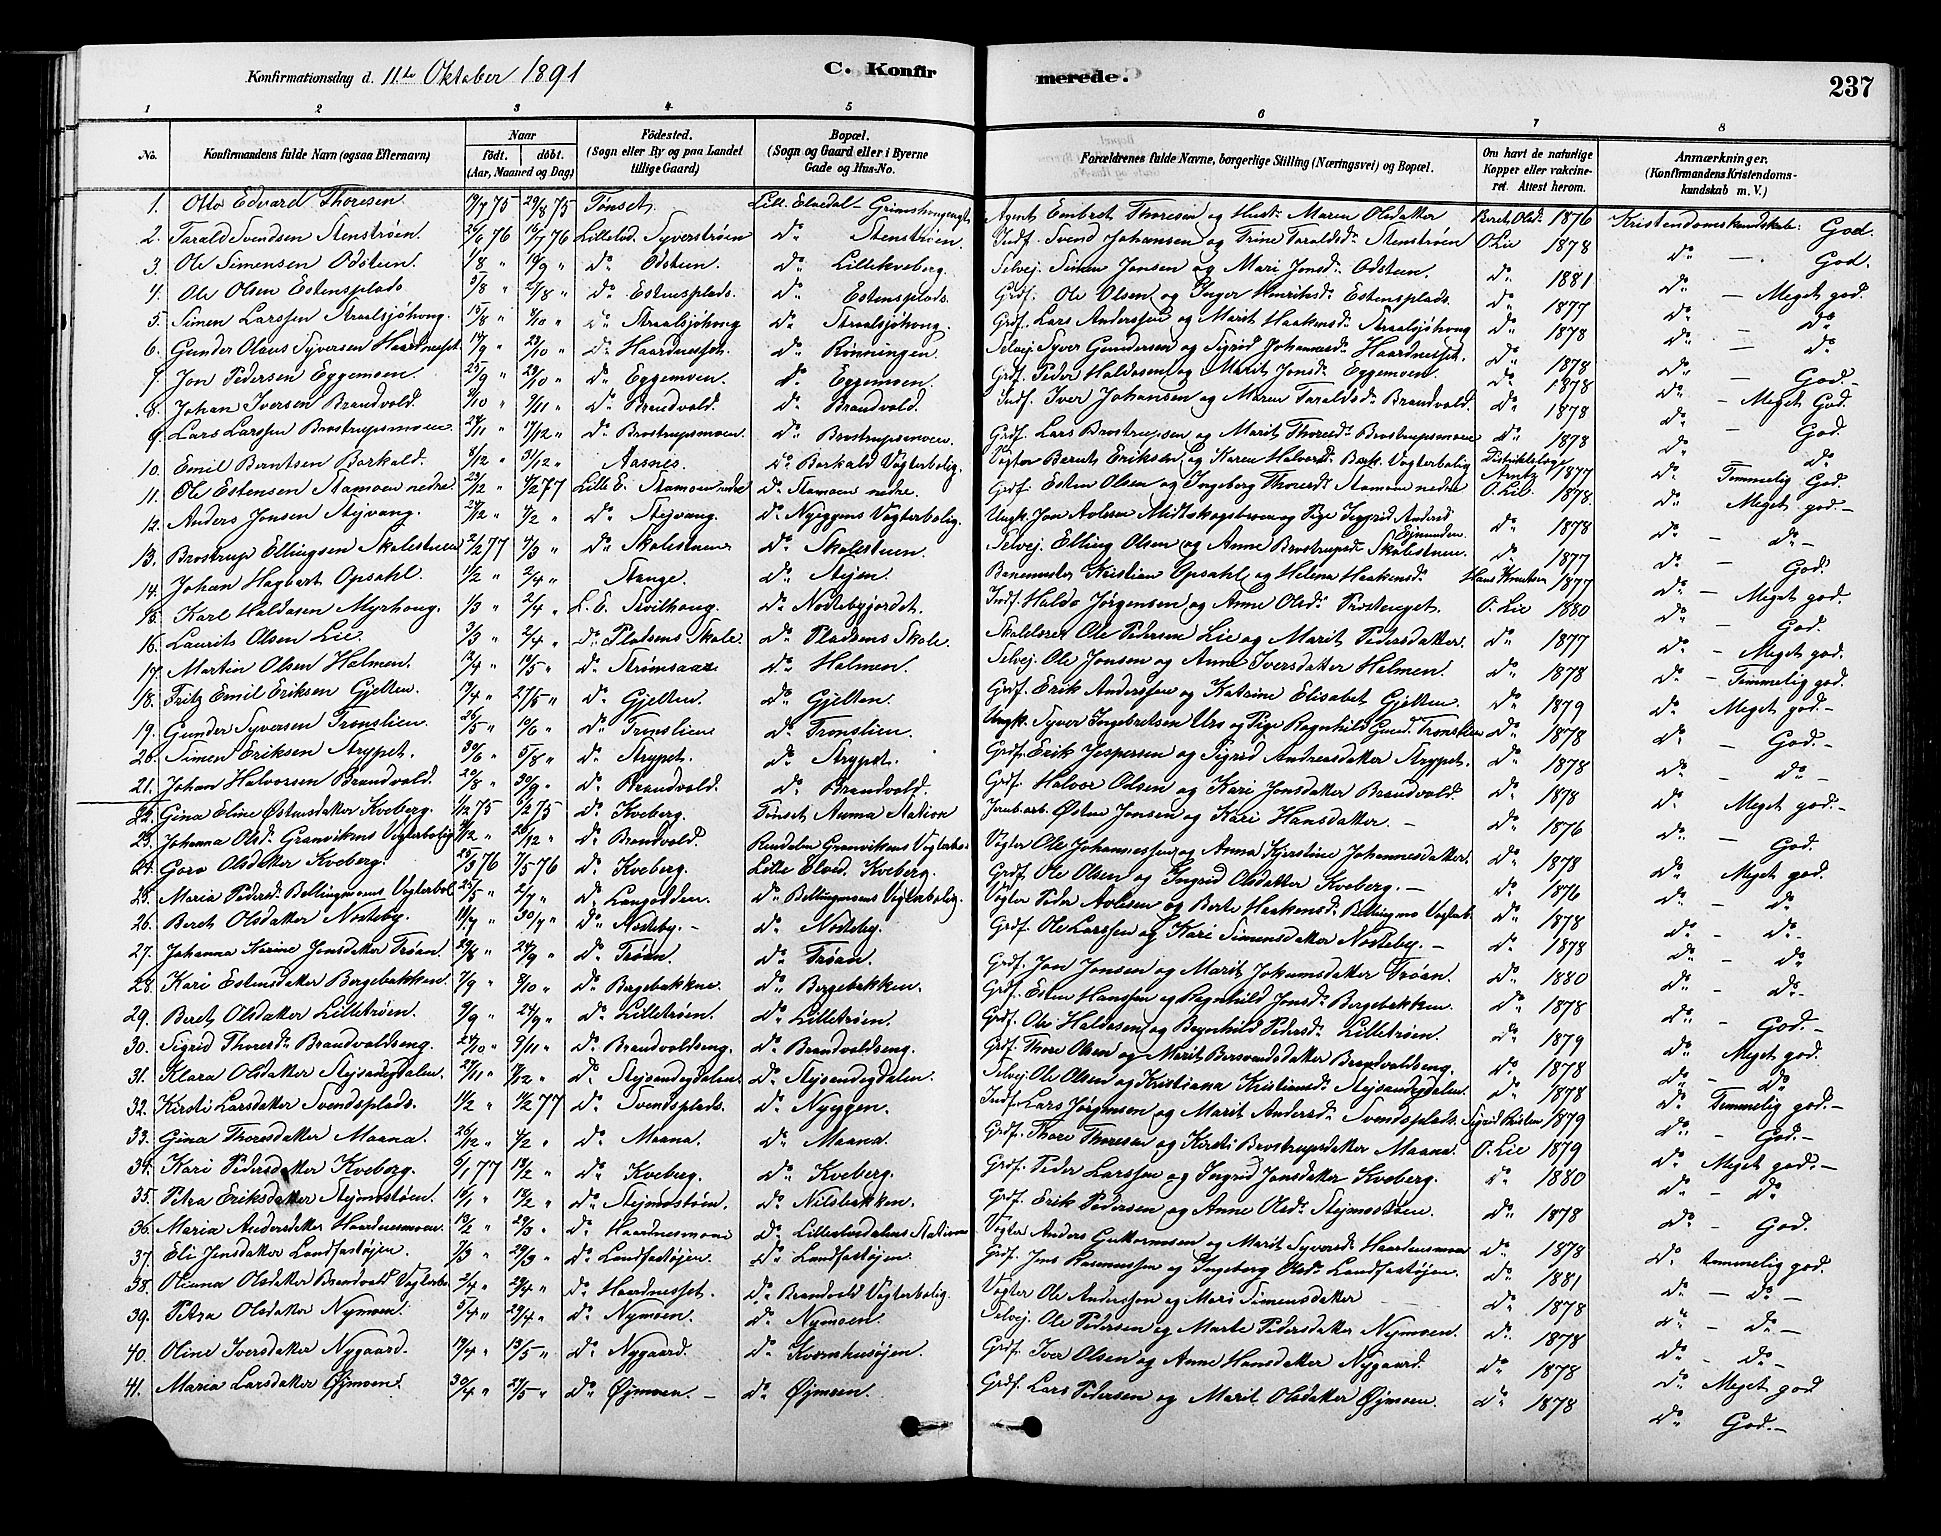 Konfirmationsdag d. 11te Oktober 1891 C. Konfirmerede. 237
1 2 3 4 5 6 7 8
No. Konfirmandens fulde Navn (ogsaa Efternavn) Naar født. døbt. (Aar, Maaned og Dag) Fødested. (Sogn eller By og paa Landet tillige Gaard) Bopæl. (Sogn og Gaard eller i Byerne Gade og Hus-No. Forældrenes fulde Navne, borgerlige Stilling (Næringsvei) og Bopæl. Om havt de naturlige Kopper eller vakcineret. Attest herom. Anmærkninger. (Konfirmandens Kristendomskundskab m. V.)
1. Otto Edvard Thoresen 19/7 75 29/8 75 Tønset. Lill. Elvedal Agent Embret Thoresen og Hustr. Maren Olsdatter Beret Olsd. 1876 Kristendomskundskab: God.
2. Tarald Svendsen Stenstrøen 26/6 76 16/7 76 Lilleelvd. Syverstrøen do Stenstrøen Indf. Svend Johansen og Trine Taraldsd. Stenstrøen O. Lie 1878 do — God.
3. Ole Simensen Odsteen. 1/8 " 10/9 " do Odsteen. do Lillekveberg. Selvej. Simen Jonsen og Mari Jonsd. Odsteen. do 1881 do — Meget god.
4. Ole Olsen Estensplads 5/8 " 27/8 " do Estensplads. do Estensplads. Grdf. Ole Olsen og Inger Henriksd. Estensplads. do 1877 do — do
5. Simen Larssen Straalsjøhøug. 15/8 " do Straalsjøhøug do Straalsjøhøug. Grdf. Lars Anderssen og Marit Haakensd. Straalsjøhøug do 1878 do — do
6. Gunder Olaus Syversen Haardnesset 29/10 " do Haardnesset. do Rønningen. Selvej. Syver Gundersen og Sigrid Johannesd. Haardnesset. do 1878 do — God.
7. Jon Pedersen Eggemoen. 25/9 " 29/10 " do Eggemoen. do Eggemoen. Grdf. Peder Haldosen og Marit Jonsd. Eggemoen. do 1878 do — Meget God.
8. Johan Iversen Brandvold. do Brandvold. do Brandvold. Indf. Iver Johansen og Maren Taraldsd. Brandvold. do 1878 do God
9. Lars Larssen Brostrupsmoen 17/12 " do Brostrupsmoen. do Brostrupsmoen. Grdf. Lars Brostrupsen og Marit Thoresd. Brostrupsmoen do 1878 do do
10. Emil Berntsen Barkald. 8/12 " 31/12 " Aasnes. do Barkald Vogterbolig. Vogter Bernt Eriksen og Karen Halvorsd. Bark. Vogterbolig Distriktslæg Arntz 1877 do Temmelig God.
11. Ole Estensen Stamoen nedre 4/2 77 Lille E. Stamoen nedre do Stamoen nedre. Grdf. Esten Olsen og Ingeborg Thoresd. Stamoen nedre O. Lie 1878. do Meget god—
12. Anders Jonsen Stejvang. 4/2 " do Stejvang. do Nyeggens Vogterbolig. Ungk. Jon Avlesen og Pige Ingrid Andersd. do 1878 do — do —
13. Brostrup Ellingsen Skolestuen 2/2 77 4/3 " do Skolestuen do Skolestuen. Selvej. Elling Olsen og Anne Brostrupsd. Skolestuen. do 1877 do — God.
14. Johan Hagbart Opsahl. 1/2 " 2/4 " Stange. do Stejen. Banemester Kristian Opsahl og Helena Haakensd. Hans Knutsen 1877 do — Meget god.
15. Karl Haldosen Myrhoug. 1/3 " 2/4 " L. E. do Nostebyjordet. Indf. Haldo Jørgensen og Anne Olsd. O. Lie 1880 do — God.
16. Laurits Olsen Lie. 3/3 " 2/4 " do Pladsens Skole. do Pladsens Skole. Skolelærer Ole Pedersen Lie og Marit Pedersdatter. do 1877 do — Meget god.
17. Martin Olsen Holmen. 12/4 " do Strømsaas do Holmen. Selvej. Ole Jonsen og Anne Iversdatter Holmen. do 1878 do — Temmelig god.
18. Fritz Emil Eriksen Gjelten. 27/5 " do Gjelten. do Gjelten. Grdf. Erik Anderssen og Katrine Elisabet Gjelten. do 1879 do Meget god.—
19. Gunder Syversen Tronslien. 26/5 " 10/6 " do Tronslien do Tronslien. Ungk. Syver Ingebretsen Uro og Pige Ragnhild Gund. Tronslien do 1878 do — God.—
20. Simen Eriksen Strypet. 30/6 " 5/8 " do Strypet. do Strypet. Grdf. Erik Jespersen og Sigrid Andreasdatter Strypet. do 1878 do — do —
21. Johan Halvorsen Brandvold. 20/8 " 30/9 " do Brandvold. do Brandvold. Grdf. Halvor Olsen og Kari Jonsdatter Brandvold. do 1878 do Meget god.—
22. Gina Eline Østensdatter Kveberg. do Kveberg. Tønset Auma Station Jernb.arb. Østen Jonsen og Kari Hansdatter. — do 1876 do — God.
23. Johanna Olsd. Granvikens Vogterbolig 26/12 " do Brandvold. Rendalen Granvikens Vogterbo. Vogter Ole Johannessen og Anna Kjerstine Johannesdatter. do 1878 do Meget god.
24. Goro Olsdatter Kveberg. 7/5 76 do Kveberg. Lille Elved. Kveberg. Grdf. Ole Olsen og Ingrid Olsdatter Kveberg. — do 1876 do — do
25. Maria Pedersd. Bellingmoens Vogterbol. 25/5 " 2/7 " do Langodden. do Bellingmoens Vogterbolig. Vogter Peder Avlesen og Berte Haakensd. Bellingmo Vogterb. do 1878 do — do.
26. Beret Olsdatter Nosteby. 11/7 " 30/7 " do Nosteby. — do Nosteby. Grdf. Ole Larssen og Kari Simensdatter Nosteby. — do 1878 do — do
27. Johanna Karine Jonsdatter Trøan. 29/8 " 24/9 " do Trøan. do Trøan. Grdf. Jon Jonsen og Marit Johansdatter Trøan. do 1880 do — do.
28. Kari Estensdatter Bergebakken. 7/9 " 8/10 " do Bergebakken. do Bergebakken. Grdf. Esten Hanssen og Ragnhild Jonsd. Bergebakken. do 1878 do — God.—
29. Beret Olsdatter Lilletrøen. 9/9 " 24/9 " do Lilletrøen. do Lilletrøen. Grdf. Ole Haldosen og Ragnhild Pedersd. Lilletrøen. do 1879 do Meget god.
30. Sigrid Thoresd. Brandvoldseng. 24/10 " do Brandvoldseng. do Brandvoldseng. Grdf. Thore Olsen og Marit Bersvendsdatter Brandvoldseng. do 1878 do — do
31. Klara Olsdatter Stejsandegdalen. do Stejsandegdalen. do Stejsandegdalen. Selvej. Ole Olsen og Kristiana Kristiansd. Stejsandegdalen. do 1878 do Temmelig god.—
32. Kirsti Larsdatter Svendsplads. do Svendsplads. do Nyeggen. Indf. Lars Jørgensen og Marit Andersd. Svendsplads. 1879 do — God.—
33. Gina Thoresdatter Maana. 26/12 " 4/2 " do Maana. do Maana. Grdf. Thore Thoresen og Kirsti Brostrupsdatter Maana. O. Lie 1879 do Meget god.—
34. Kari Pedersdatter Kveberg. 6/1 77 18/2 " do Kveberg. do Kveberg. Grdf. Peder Larssen og Ingrid Jonsdatter Kveberg. do 1880 do — do
35. Petra Eriksdatter Stejmostøen. 18/2 " do Stejmostøen. do Nilsbakken. Grdf. Erik Pedersen og Anne Olsd. Stejmostøen. do 1878 do — God.
36. Maria Andersdatter Haardnesmoen. 29/3 " do Haardnesmoen do Lilleelvedalens Station Vogter Anders Guttormsen og Marit Syversd. Haardnesmoen do 1878 do Temmelig god.
37. Eli Jensdatter Landfastøjen. 7/3 " 29/3 " do Landfastøjen. do Landfastøjen. Grdf. Jens Rasmussen og Ingeborg Olsd. Landfastøjen. do 1881 do — do —
38. Olianna Olsdatter Brandvold Vogterbo 2/4 " 29/4 " do Haardnesset. do Brandvold Vogterbolig. Vogter Ole Anderssen og Mari Simensdatter — do 1878 do — do —
39. Petra Olsdatter Nymoen. 5/4 " 29/4 " do Nymoen. do Nymoen. Selvej. Ole Pedersen og Marte Pedersdatter Nymoen. do 1878 do — do —
40. Oline Iversdatter Nygaard. 13/5 " do Nygaard. do Kvernhusøjen. Grdf. Iver Olsen og Anne Hansdatter Nygaard. do 1878 do Meget god
41. Maria Larsdatter Øjmoen. 30/4 " 27/5 " do Øjmoen. — do Øjmoen. Grdf. Lars Pedersen og Marit Olsdatter Øjmoen. do 1878 do God.—